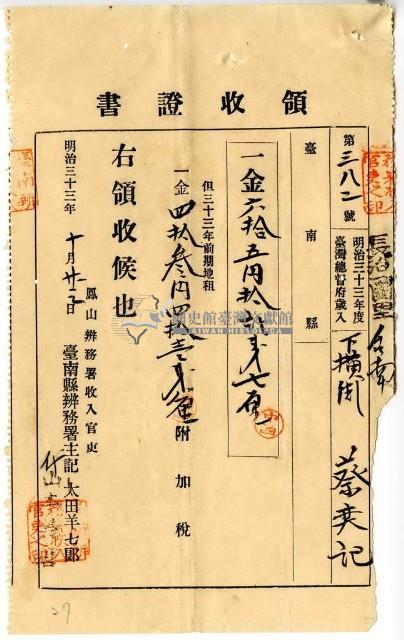 領收證書
第三八二號
明治三十三年度
臺灣總督府歲入
長治圖里
下橫街
蔡奕記
臺南縣
一金六拾五円拾
七厘
但三十三年前期地租
一金四拾叁円四拾壹
附加稅
右領收候也
明治三十三年十月廿
日
鳳山辨務署收入官吏
臺南縣辨務署主記 太田羊七郎
國史館臺灣文獻館
TAIWAN HISTORICA
27